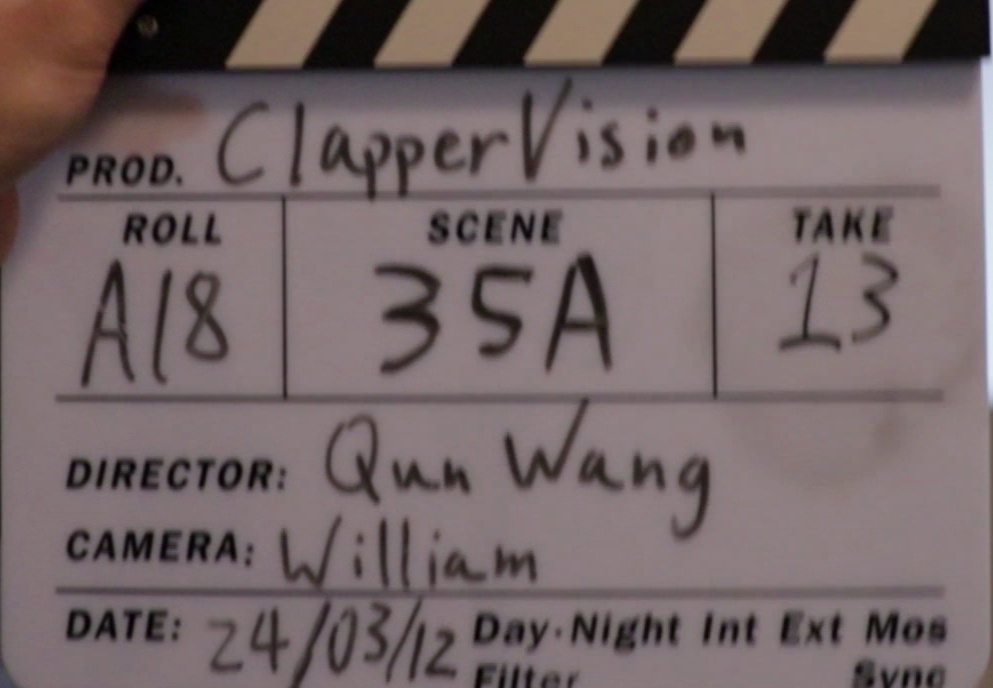 PROD. ClapperVision
ROLL SCENE TAKE
A18 35A 13
DIRECTOR: Qun Wang
CAMERA: William
DATE: 24/03/12 Day·Night Int Ext Mos
Filter Sync